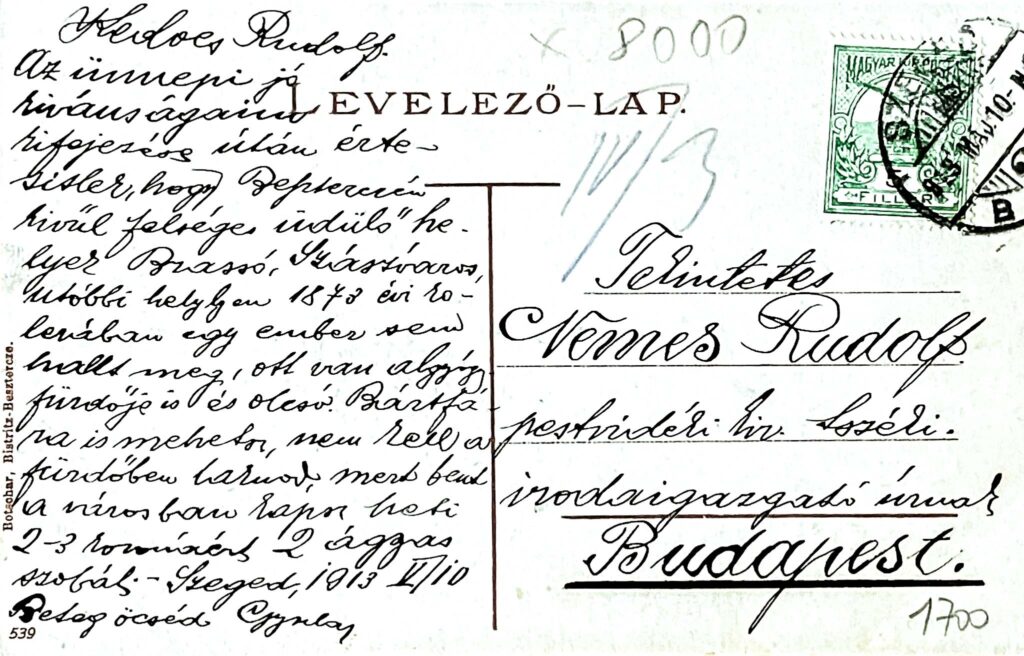 Kedves Rudolf.
Az ünnepi jó
kivánságaim
kifejezése útán érte-
sitlek, hogy Beszterczén
kivűl felséges üdülő he-
lyek Brassó, Szászváros,
utóbbi helyen 1873 évi ko-
lerában egy ember sem
halt meg, ott van algyógy
fürdője is és olcsó. Bártfá-
ra is mehetsz, nem kell a
fürdőben laknod, mert bent
a városban kapsz heti
2-3 koronáért 2 ágyas
szobát. - Szeged, 1913 V/10
Beteg öcséd Gyula
539
Botschar, Bistritz-Besztercze.
LEVELEZŐ-LAP.
x 8000
IV/3
MAGYAR KIR. POSTA
FILLÉR
913 MÁJ. 10
B
Tekintetes
Nemes Rudolf
pestvidéki kir. tszéki.
irodaigazgató úrnak
Budapest.
1700